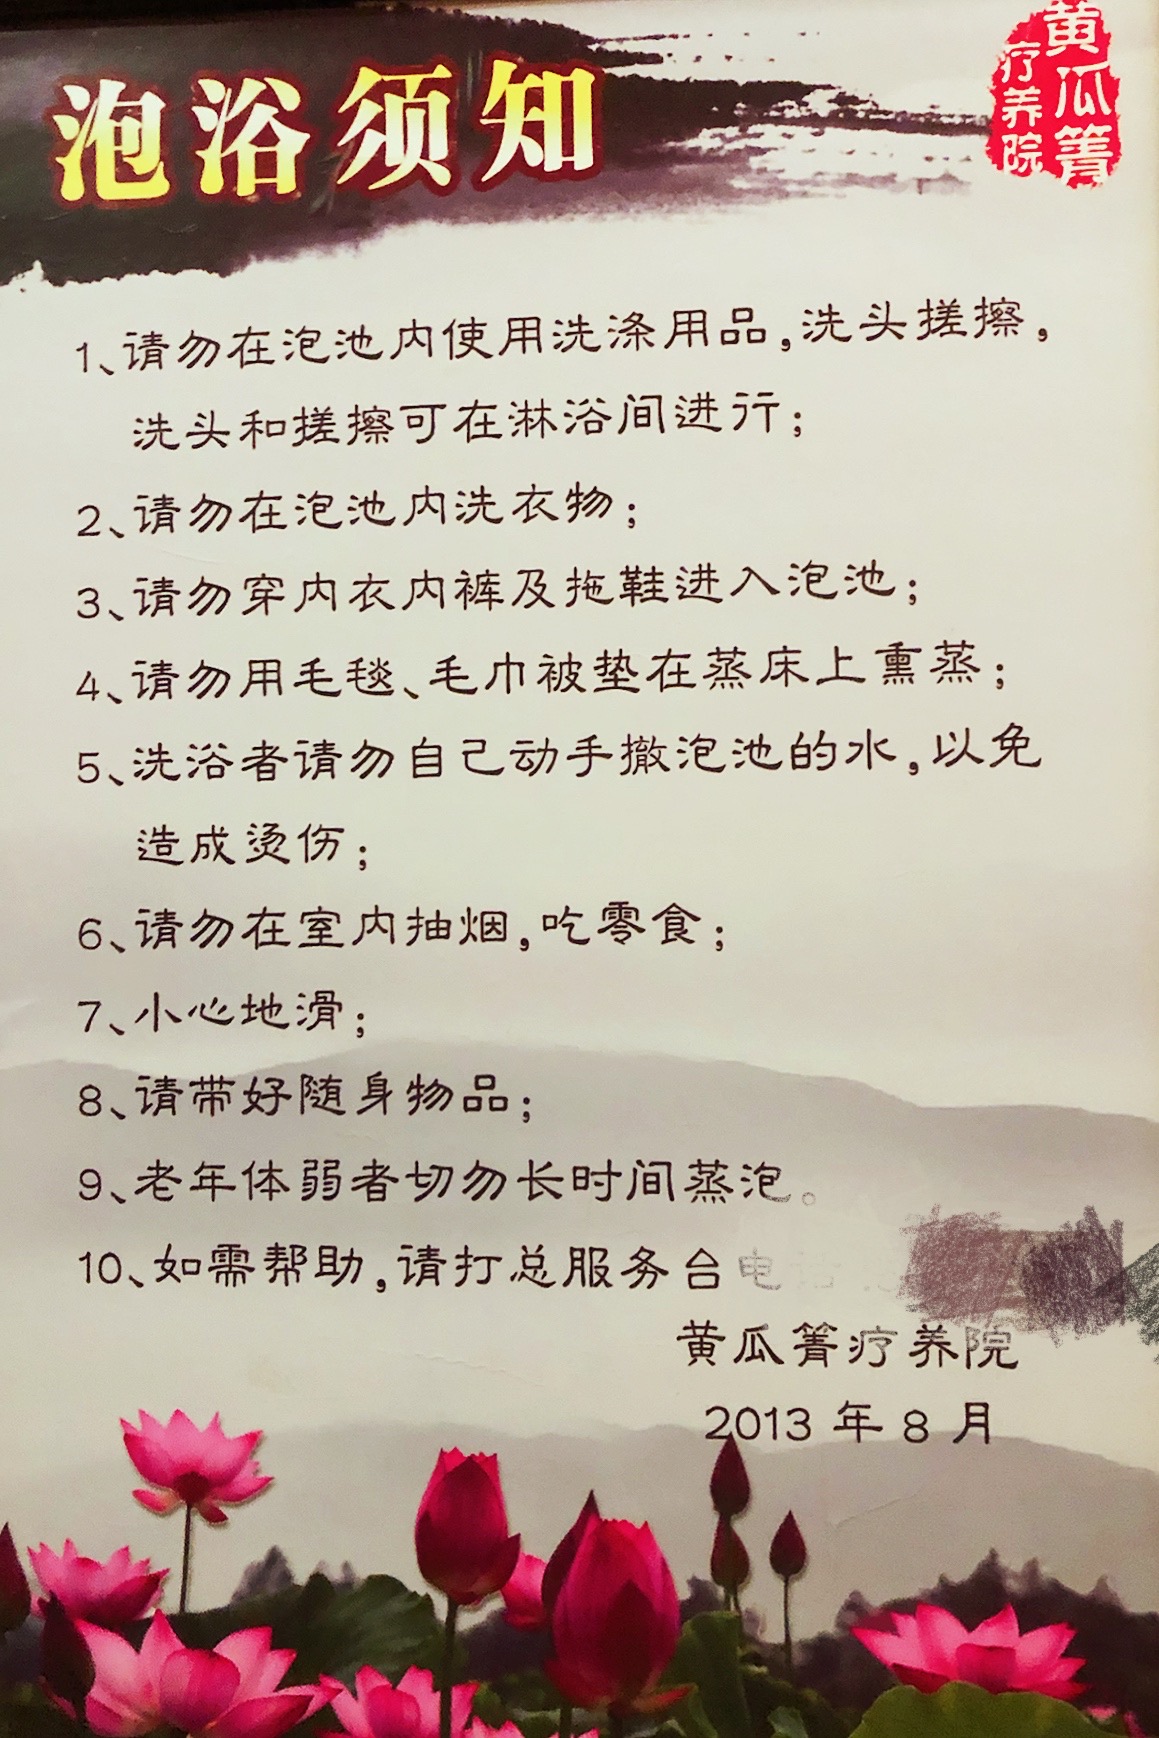 泡浴须知
黄瓜箐
疗养院
1、请勿在泡池内使用洗涤用品,洗头搓擦,
洗头和搓擦可在淋浴间进行;
2、请勿在泡池内洗衣物;
3、请勿穿内衣内裤及拖鞋进入泡池;
4、请勿用毛毯、毛巾被垫在蒸床上熏蒸;
5、洗浴者请勿自己动手撤泡池的水,以免
造成烫伤;
6、请勿在室内抽烟,吃零食;
7、小心地滑;
8、请带好随身物品;
9、老年体弱者切勿长时间蒸泡。
10、如需帮助,请打总服务台电话
黄瓜箐疗养院
2013年8月